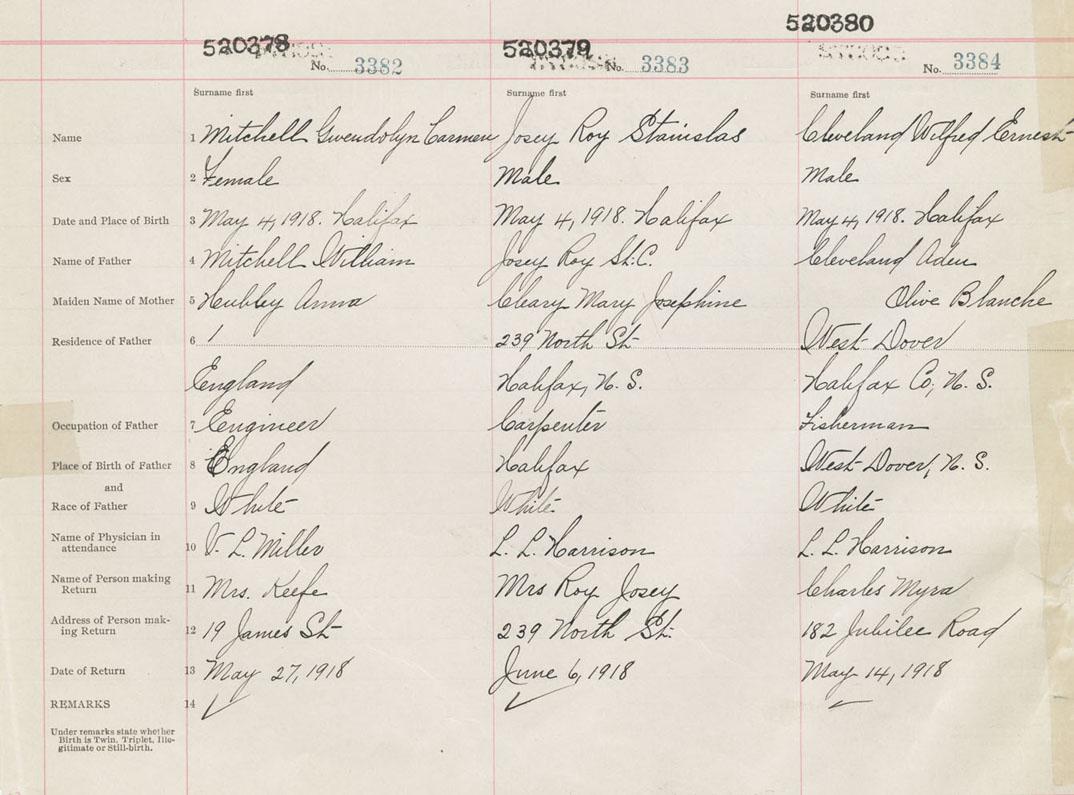 520378 520379 520380
No. 3382 No. 3383 No. 3384
Surname first Surname first Surname first
Name 1 Mitchell Gwendolyn Carmen Josey Roy Stanislas Cleveland Wilfred Ernest
Sex 2 Female Male Male
Date and Place of Birth 3 May 4, 1918. Halifax May 4, 1918. Halifax May 4, 1918. Halifax
Name of Father 4 Mitchell William Josey Roy St. C. Cleveland Aden
Maiden Name of Mother 5 Hubley Anna Cleary Mary Josephine Olive Blanche
Residence of Father 6 239 North St West Dover
England Halifax, N. S. Halifax Co, N. S.
Occupation of Father 7 Engineer Carpenter Fisherman
Place of Birth of Father 8 England Halifax West Dover, N. S.
and
Race of Father 9 White White White
Name of Physician in
attendance 10 V. L. Miller L. L. Harrison L. L. Harrison
Name of Person making
Return 11 Mrs. Keefe Mrs Roy Josey Charles Myra
Address of Person mak-
ing Return 12 19 James St 239 North St. 182 Jubilee Road
Date of Return 13 May 27, 1918 June 6, 1918 May 14, 1918
REMARKS 14
Under remarks state whether
Birth is Twin, Triplet, Ille-
gitimate or Still-birth.